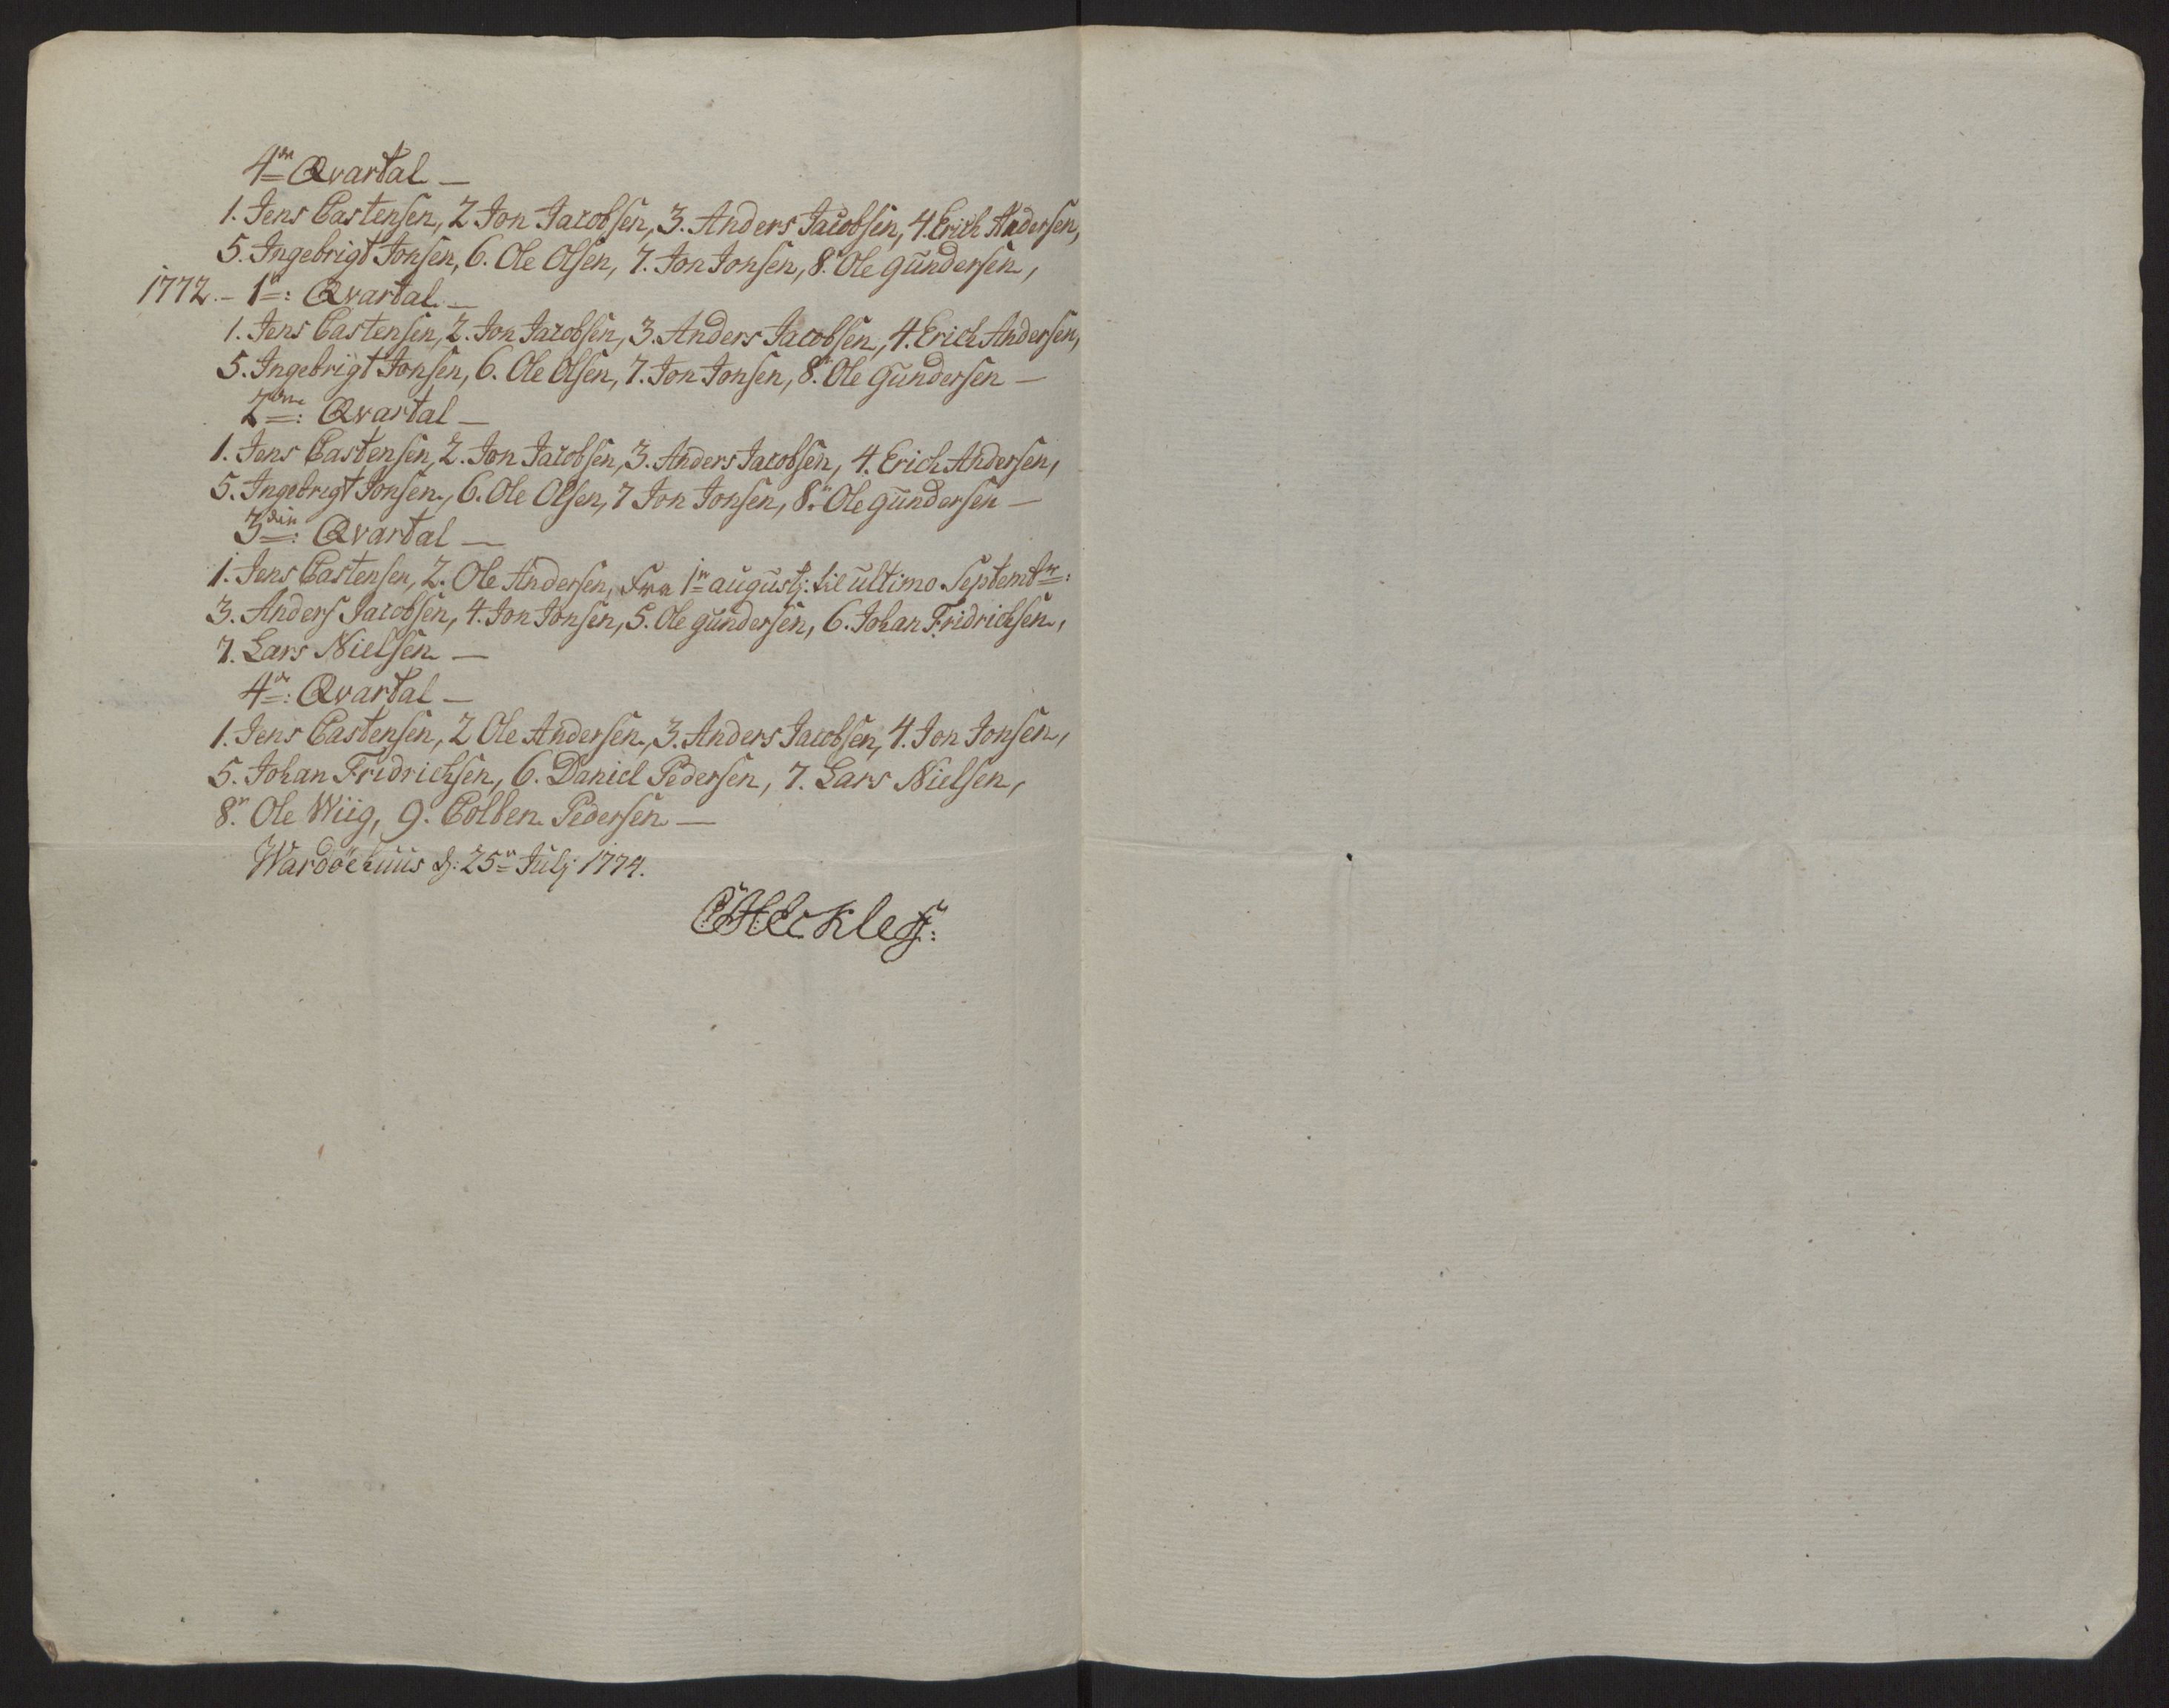 4de Qvartal —
1. Jens Castensen, 2 Jon Jacobsen, 3. Anders Jacobsen, 4. Erich Andersen,
5. Ingebrigt Jonsen, 6. Ole Olsen, 7. Jon Jonsen, 8. Ole Gundersen,
1772. – 1te: Qvartal. —
1. Jens Castensen, 2. Jon Jacobsen, 3. Anders Jacobsen, 4. Erich Andersen,
5. Ingebrigt Jonsen, 6. Ole Olsen, 7. Jon Jonsen, 8. Ole Gundersen —
2den: Qvartal —
1. Jens Castensen, 2. Jon Jacobsen, 3. Anders Jacobsen, 4. Erich Andersen,
5. Ingebrigt Jonsen, 6. Ole Olsen, 7 Jon Jonsen, 8. Ole Gundersen —
3die: Qvartal —
1. Jens Castensen, 2. Ole Andersen, fra 1te augustj: til ultimo Septembr:
3. Anders Jacobsen, 4. Jon Jonsen, 5. Ole gundersen, 6. Johan Fridrichsen,
7. Lars Nielsen —
4de: Qvartal —
1. Jens Castensen, 2 Ole Andersen, 3. Anders Jacobsen, 4. Jon Jonsen,
5. Johan Fridrichsen, 6. Daniel Pedersen, 7. Lars Nielsen,
8. Ole Wiig, 9. Colben Pedersen —
Wardöehuus d: 25de Julj 1774.